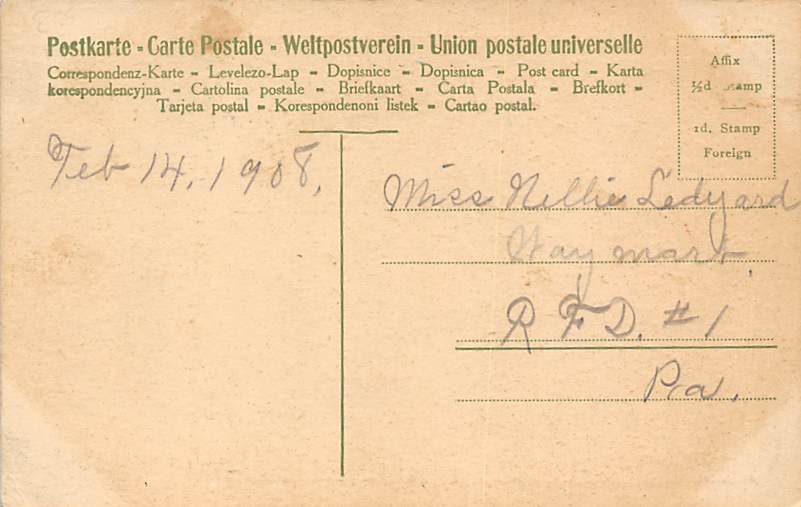 Postkarte - Carte Postale - Weltpostverein - Union postale universelle
Correspondenz-Karte - Levelezo-Lap - Dopisnice - Dopisnica - Post card - Karta
korespondencyjna - Cartolina postale - Briefkaart - Carta Postala - Brefkort -
Tarjeta postal - Korespondenoni listek - Cartao postal.
Affix
½d Stamp
1d. Stamp
Foreign
Feb 14, 1908,
Miss Nellie Ledyard
Waymart
R F D. #1
Pa.